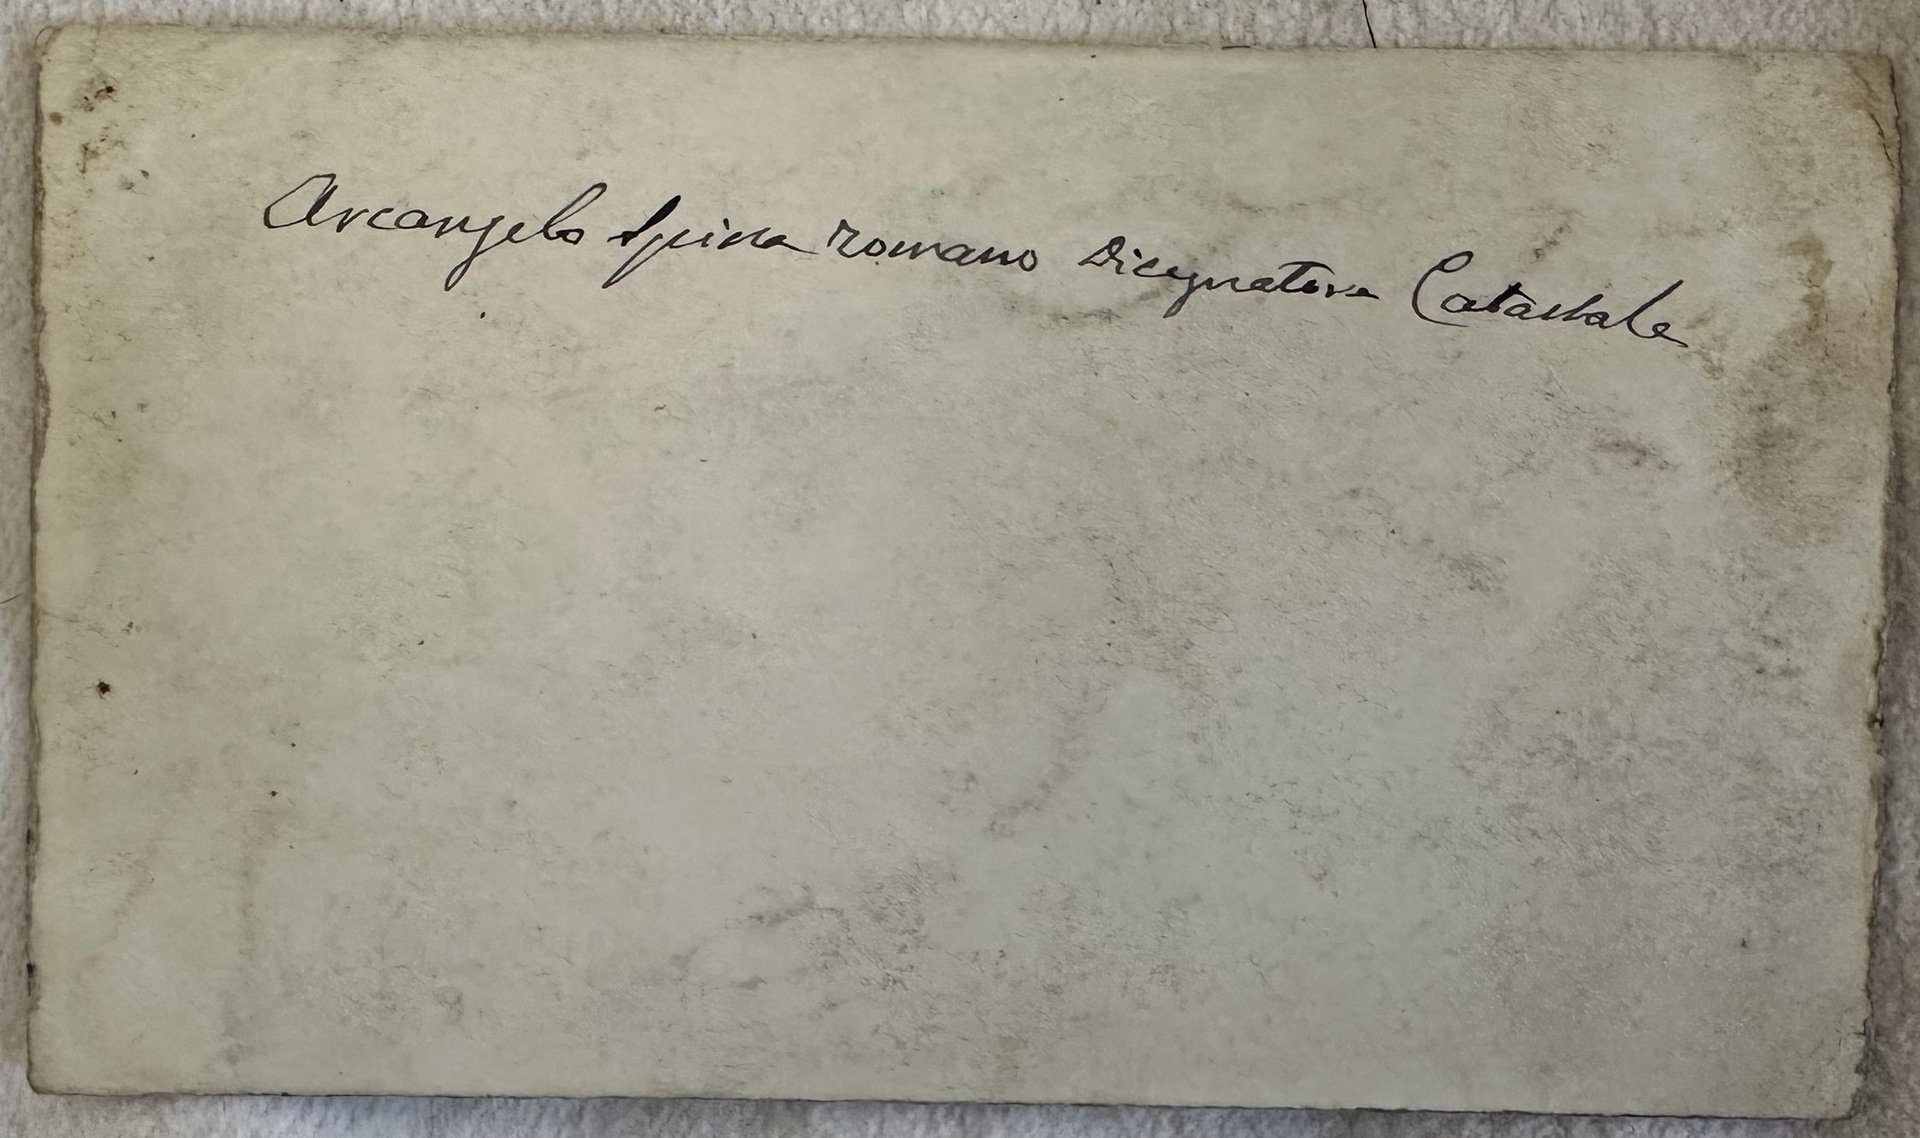 Arcangelo Spina romano Dicegnatore Catastale